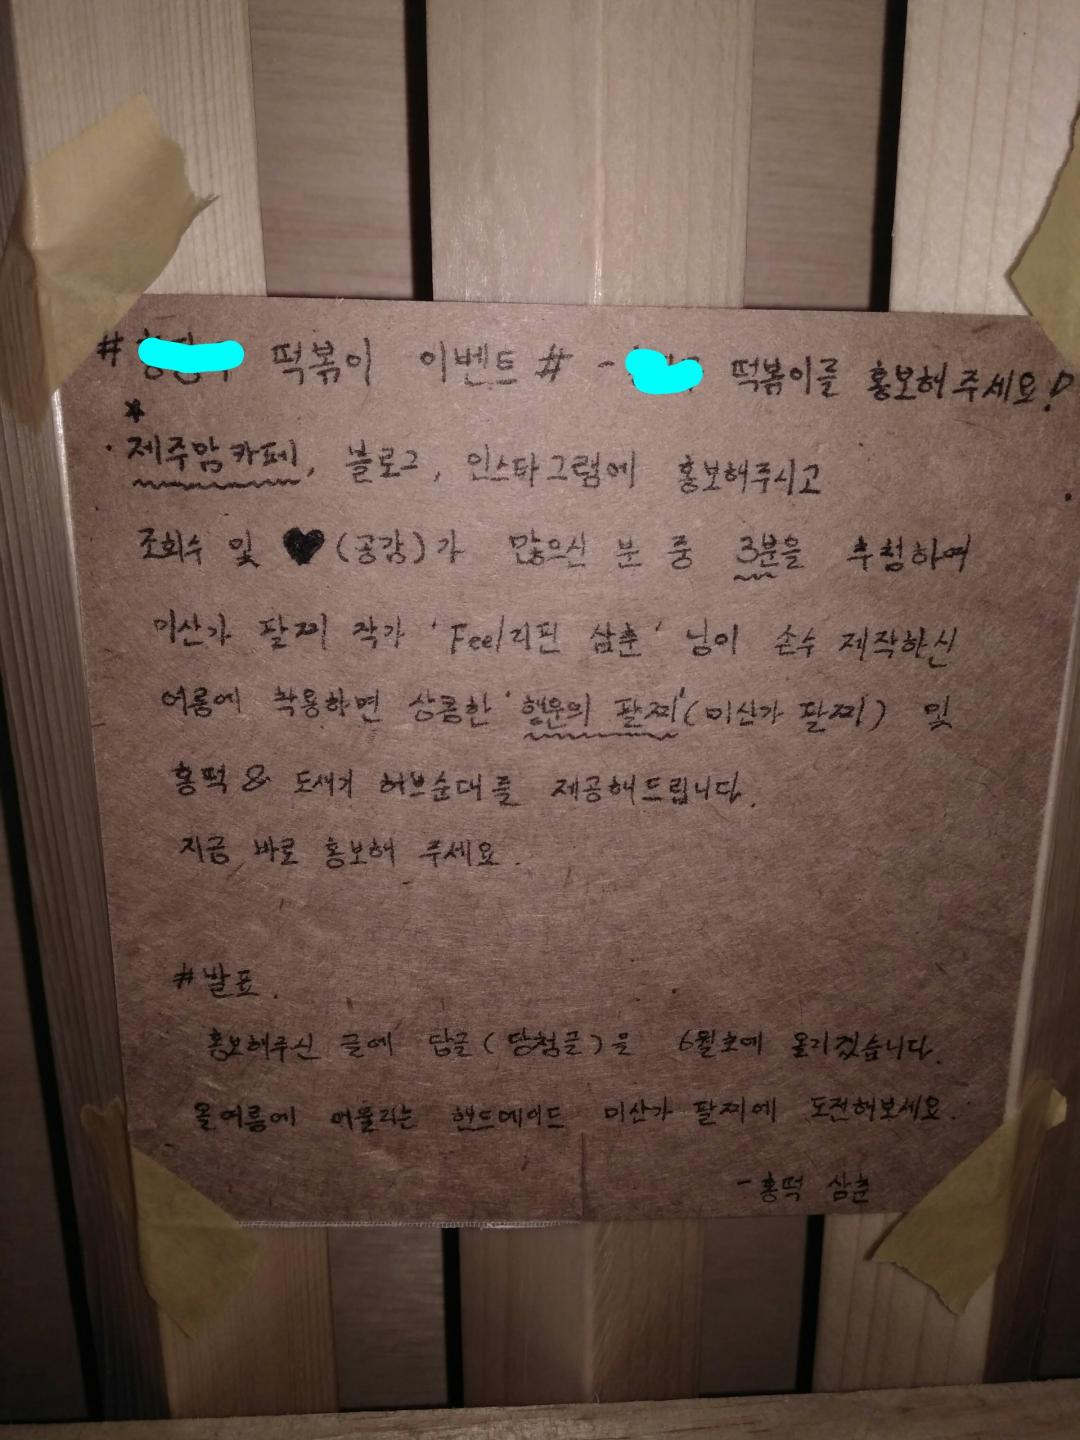 # 떡볶이 이벤트 # - 떡볶이를 홍보해 주세요!
* 
· 제주맘카페, 블로그, 인스타그램에 홍보해주시고
조회수 및 ♥(공감)가 많으신 분 중 3분을 추첨하여
미산가 팔찌 작가 'Feel리핀 삼춘' 님이 손수 제작하신
여름에 착용하면 상콤한 '행운의 팔찌'(미산가 팔찌) 및
홍떡 & 도새기 허브순대를 제공해드립니다.
지금 바로 홍보해 주세요.
#발표.
홍보해주신 글에 답글(당첨글)을 6월초에 올리겠습니다.
올여름에 어울리는 핸드메이드 미산가 팔찌에 도전해보세요.
- 홍떡 삼춘